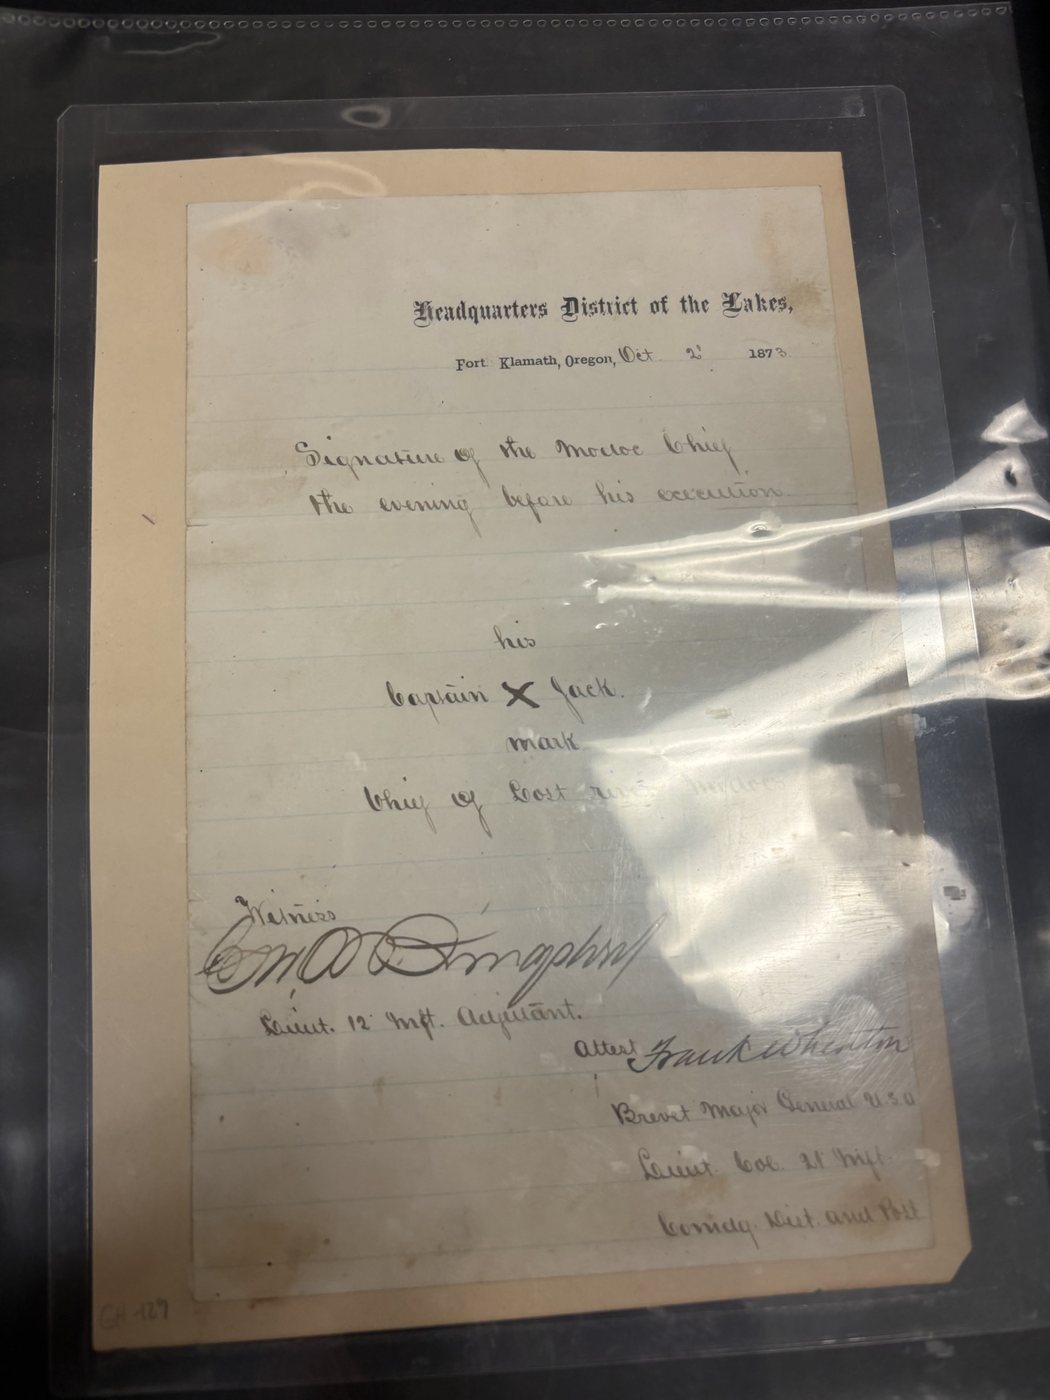 Headquarters District of the Lakes,
Fort Klamath, Oregon, Oct 2 1873
Signature of the Modoc Chief
the evening before his execution
his
Captain X Jack.
mark
Chief of Lost river Modocs
Witness
Lieut. 12 Inft. Adjutant.
Attest Frank Wheaton
Brevet Major General U.S.A
Lieut. Col. 21 Inft.
Comdg. Dist. and Post
GH-129